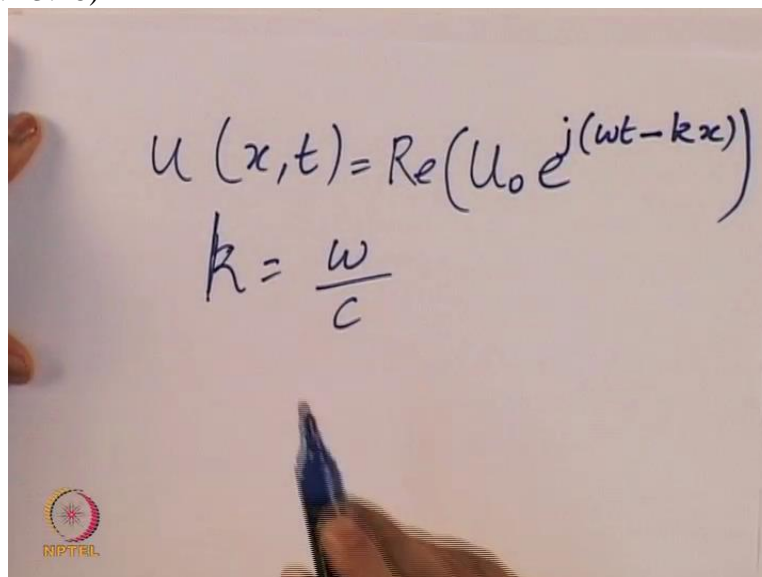 u (x,t) = Re(U₀ e^{j(ωt-kx)})
k = ω/c
NPTEL